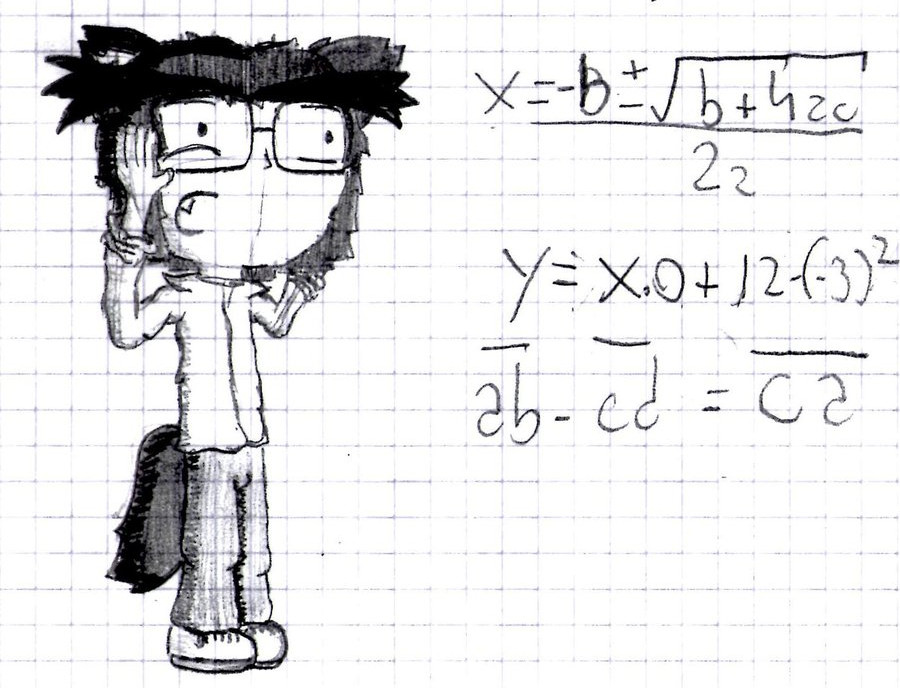 x = -b ± √b + 4ac
2a
y = x.0 + 12-(-3)²
ab - cd = ca